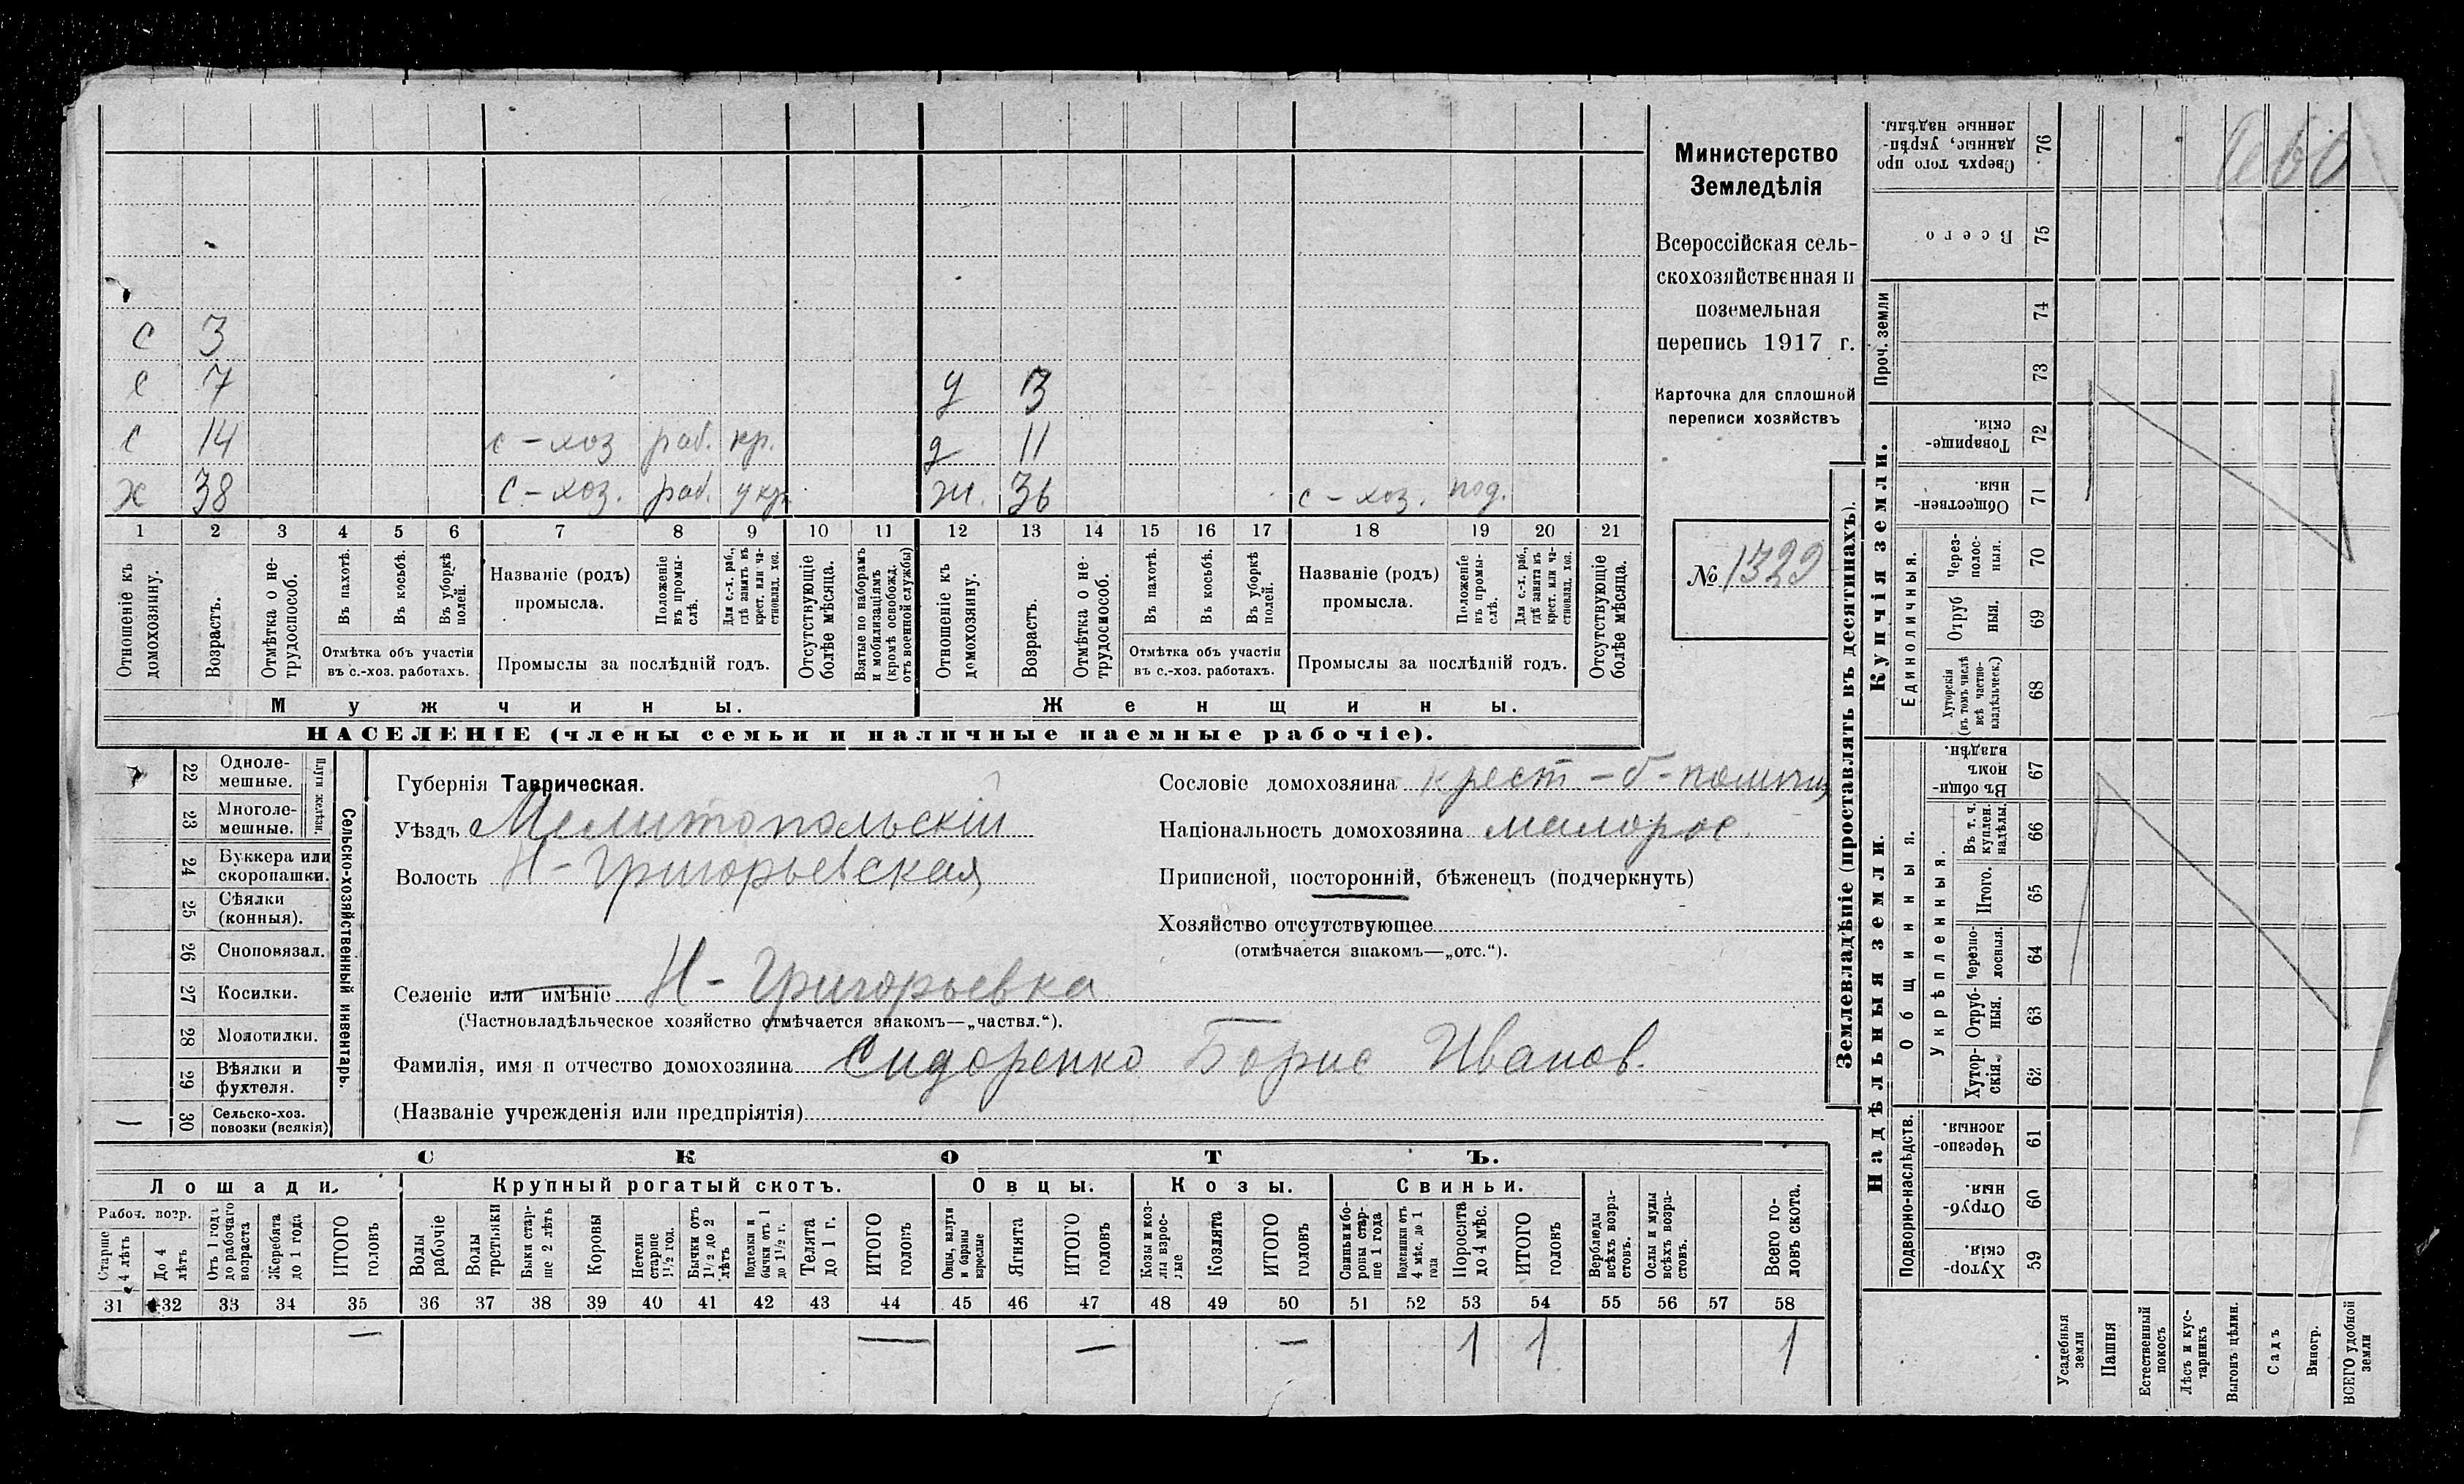 Министерство
Земледѣлія
Всероссійская сель-
скохозяйственная и
поземельная
перепись 1917 г.
Карточка для сплошной
переписи хозяйствъ
№ 1329
с 3
с 7 д 3
с 14 с-хоз раб. кр. д 11
х 38 с-хоз. раб. у кр. ж. 36 с-хоз. под.
1 2 3 4 5 6 7 8 9 10 11 12 13 14 15 16 17 18 19 20 21
Отношеніе къ домохозяину.
Возрастъ.
Отмѣтка о не-трудоспособ.
Въ пахотѣ.
Въ косьбѣ.
Въ уборкѣ полей.
Отмѣтка объ участіи
въ с.-хоз. работахъ.
Названіе (родъ)
промысла.
Положеніе въ промы-слѣ.
Для с.-х. раб., гдѣ занятъ въ крест. или ча-стновлад. хоз.
Промыслы за послѣдній годъ.
Отсутствующіе болѣе мѣсяца.
Взятые по наборамъ и мобилизаціямъ (кромѣ освобожд. отъ военной службы)
Отношеніе къ домохозяину.
Возрастъ.
Отмѣтка о не-трудоспособ.
Въ пахотѣ.
Въ косьбѣ.
Въ уборкѣ полей.
Отмѣтка объ участіи
въ с.-хоз. работахъ.
Названіе (родъ)
промысла.
Положеніе въ промы-слѣ.
Для с.-х. раб., гдѣ занята въ крест. или ча-стновлад. хоз.
Промыслы за послѣдній годъ.
Отсутствующіе болѣе мѣсяца.
Мужчины. Женщины.
НАСЕЛЕНІЕ (члены семьи и наличные наемные рабочіе).
Сельско-хозяйственный инвентарь.
Плуги желѣзн.
22 Одноле-мешные.
23 Многоле-мешные.
24 Буккера или скоропашки.
25 Сѣялки (конныя).
26 Сноповязал.
27 Косилки.
28 Молотилки.
29 Вѣялки и фухтеля.
— 30 Сельско-хоз. повозки (всякія)
Губернія Таврическая.
Уѣздъ Мелитопольскій
Волость Н-Григорьевская
Селеніе или имѣніе Н-Григорьевка
(Частновладѣльческое хозяйство отмѣчается знакомъ—„частвл.“).
Фамилія, имя и отчество домохозяина Сидоренко Борис Иванов.
(Названіе учрежденія или предпріятія)
Сословіе домохозяина крест-б-помѣщ
Національность домохозяина малорос
Приписной, посторонній, бѣженецъ (подчеркнуть)
Хозяйство отсутствующее
(отмѣчается знакомъ—„отс.“).
СКОТЪ.
Лошади. Крупный рогатый скотъ. Овцы. Козы. Свиньи.
Рабоч. возр.
Старше 4 лѣтъ
До 4 лѣтъ
Отъ 1 года до рабочаго возраста
Жеребята до 1 года
ИТОГО головъ
Волы рабочіе
Волы третьяки
Быки стар-ше 2 лѣтъ
Коровы
Нетели старше 1½ год.
Бычки отъ 1½ до 2 лѣтъ
Подтелки и бычки отъ 1 до 1½ г.
Телята до 1 г.
ИТОГО головъ
Овцы, валухи и бараны взрослые
Ягнята
ИТОГО головъ
Козы и коз-лы взрос-лые
Козлята
ИТОГО головъ
Свиньи и бо-ровы стар-ше 1 года
Подсвинки отъ 4 мѣс. до 1 года
Поросята до 4 мѣс.
ИТОГО головъ
Верблюды всѣхъ возра-стовъ.
Ослы и мулы всѣхъ возра-стовъ.
Всего го-ловъ скота.
31 32 33 34 35 36 37 38 39 40 41 42 43 44 45 46 47 48 49 50 51 52 53 54 55 56 57 58
— — — — 1 1 1
Землевладѣніе (проставлять въ десятинахъ).
Надѣльныя земли.
Купчія земли.
Проч. земли
Сверхъ того про-данные, укрѣп-ленные надѣлы. 76
Всего 75
74
73
Товарище-скія. 72
Обществен-ныя. 71
Единоличныя.
Через-полос-ныя. 70
Отруб ныя. 69
Хуторскія (въ томъ числѣ всѣ частно-владѣльческ.) 68
Общинныя.
Въ общи-номъ владѣн. 67
Укрѣпленныя.
Въ т. ч. куплен. надѣлы. 66
Итого. 65
Черезпо-лосныя. 64
Отруб-ныя. 63
Хутор-скія. 62
Подворно-наслѣдств.
Черезпо-лосныя. 61
Отруб-ныя. 60
Хутор-скія. 59
Усадебныя земли
Пашня
Естественный покосъ
Лѣсъ и кус-тарникъ
Выгонъ цѣлин.
Садъ
Виногр.
ВСЕГО удобной земли